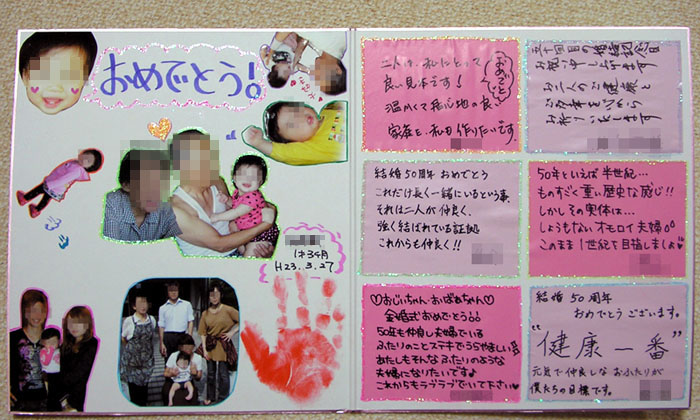 おめでとう!
1才3ヶ月
H23.3.27
二人は、私にとって
良い見本です!
おめでとう
温かくて居心地の良い
家庭を私も作りたいです。
五十回目の結婚記念日
お祝い申し上げます
お二人のご健康と
お幸せを心から
お祈りいたします
結婚50周年 おめでとう
これだけ長く一緒にいるという事
それは二人が仲良く、
強く結ばれている証拠
これからも仲良く!!
50年といえば半世紀…
ものすごく重い歴史な感じ!!
しかしその実体は…
しょうもないオモロイ夫婦
このまま1世紀を目指しましょ
♡おじいちゃん・おばあちゃん♡
金婚式おめでとう
50年も仲良し夫婦でいる
ふたりのことステキでうらやましい
あたしもそんなふたりのような
夫婦になりたいですよ
これからもラブラブでいて下さい
結婚50周年
おめでとうございます。
"健康一番"
元気で仲良しなおふたりが
僕たちの目標です。